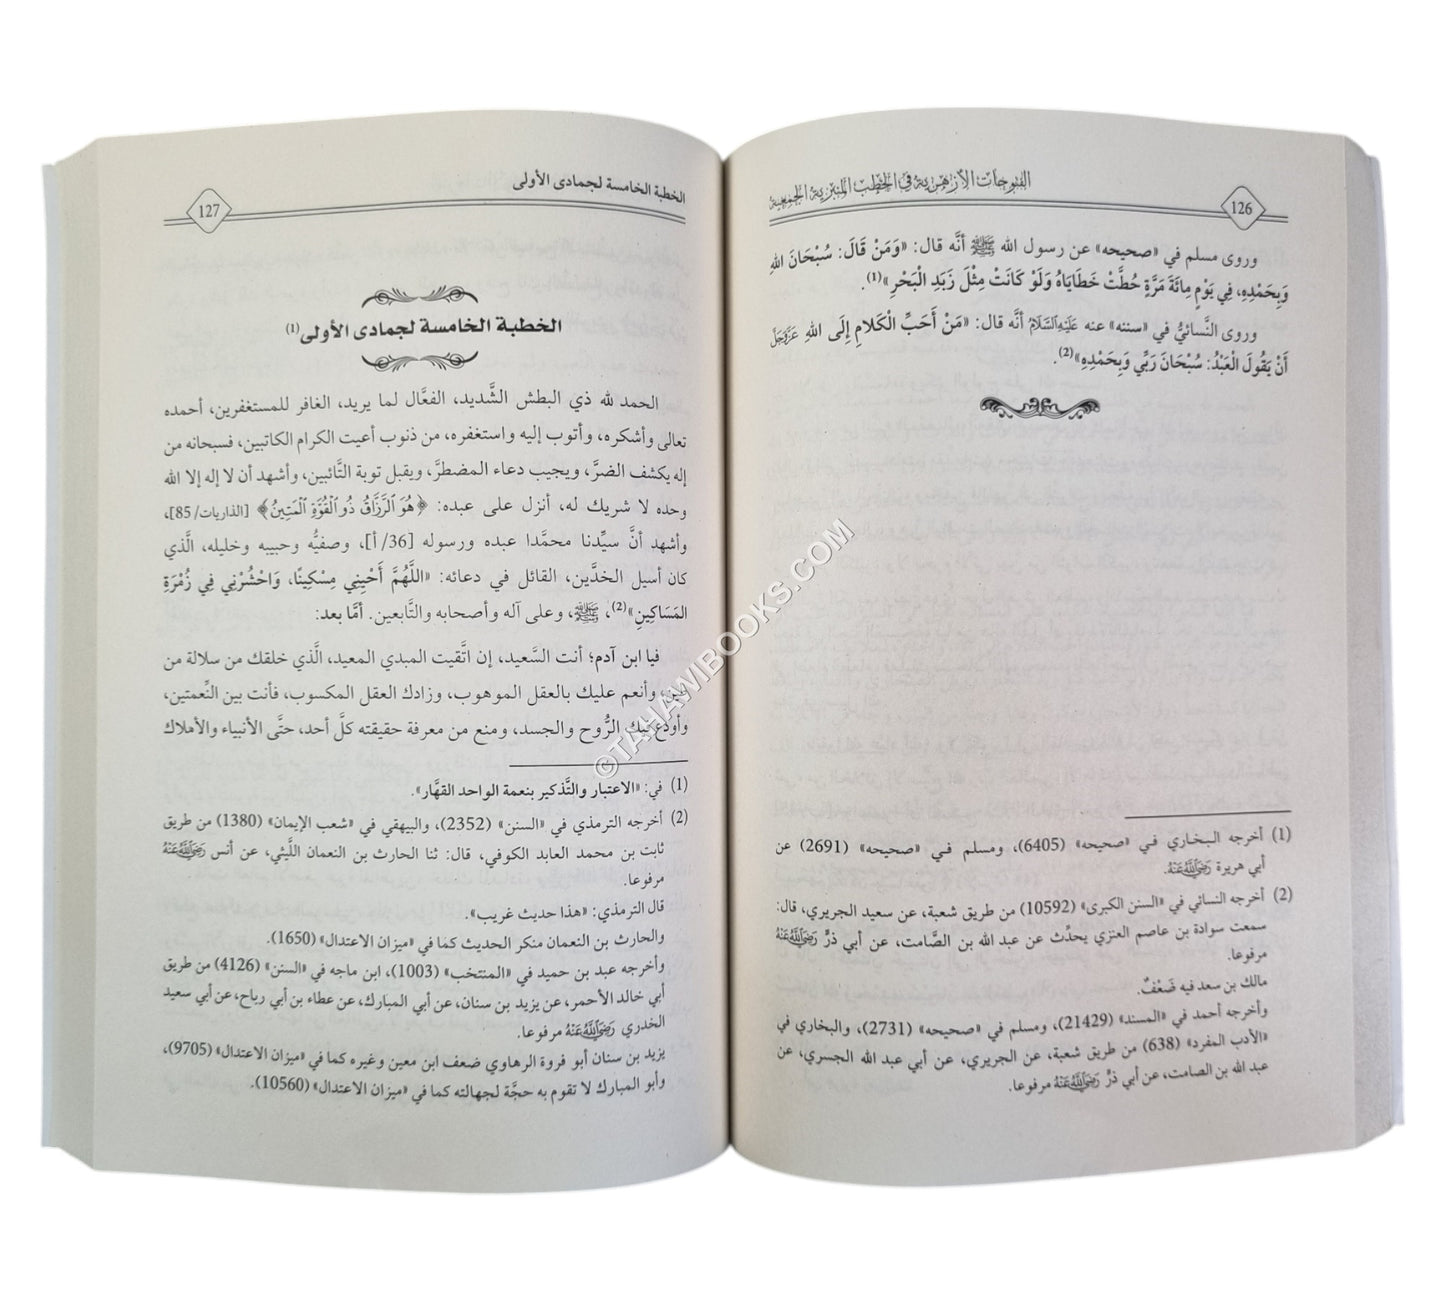 126
الفتوحات الأزهرية في الخطب المنبرية الجمعية
وروى مسلم في «صحيحه» عن رسول الله ﷺ أنَّه قال: «وَمَنْ قَالَ: سُبْحَانَ اللهِ
وَبِحَمْدِهِ، فِي يَوْمٍ مِائَةَ مَرَّةٍ حُطَّتْ خَطَايَاهُ وَلَوْ كَانَتْ مِثْلَ زَبَدِ الْبَحْرِ»(1).
وروى النَّسائيُّ في «سننه» عنه عَلَيْهِ السَّلَامُ أنَّه قال: «مَنْ أَحَبِّ الْكَلَامِ إِلَى اللهِ عَزَّوَجَلَّ
أَنْ يَقُولَ الْعَبْدُ: سُبْحَانَ رَبِّي وَبِحَمْدِهِ»(2).
(1) أخرجه البخاري في «صحيحه» (6405)، ومسلم في «صحيحه» (2691) عن
أبي هريرة رَضِيَ اللَّهُ عَنْهُ.
(2) أخرجه النسائي في «السنن الكبرى» (10592) من طريق شعبة، عن سعيد الجريري، قال:
سمعت سوادة بن عاصم العنزي يحدِّث عن عبد الله بن الصَّامت، عن أبي ذرٍّ رَضِيَ اللَّهُ عَنْهُ
مرفوعا.
مالك بن سعد فيه ضَعْفٌ.
وأخرجه أحمد في «المسند» (21429)، ومسلم في «صحيحه» (2731)، والبخاري في
«الأدب المفرد» (638) من طريق شعبة، عن الجريري، عن أبي عبد الله الجسري، عن
عبد الله بن الصامت، عن أبي ذرٍّ رَضِيَ اللَّهُ عَنْهُ مرفوعا.
الخطبة الخامسة لجمادى الأولى
127
الخطبة الخامسة لجمادى الأولى(1)
الحمد لله ذي البطش الشَّديد، الفعَّال لما يريد، الغافر للمستغفرين، أحمده
تعالى وأشكره، وأتوب إليه واستغفره، من ذنوب أعيت الكرام الكاتبين، فسبحانه من
إله يكشف الضرَّ، ويجيب دعاء المضطرَّ، ويقبل توبة التَّائبين، وأشهد أن لا إله إلا الله
وحده لا شريك له، أنزل على عبده: ﴿هُوَ ٱلرَّزَّاقُ ذُو ٱلْقُوَّةِ ٱلْمَتِينُ﴾ [الذاريات/85]،
وأشهد أنَّ سيِّدنا محمَّدا عبده ورسوله [36/أ]، وصفيُّه وحبيبه وخليله، الَّذي
كان أسيل الخدَّين، القائل في دعائه: «اللَّهُمَّ أَحْيِنِي مِسْكِينًا، وَاحْشُرْنِي فِي زُمْرَةِ
المَسَاكِينِ»(2)، ﷺ، وعلى آله وأصحابه والتَّابعين. أمَّا بعد:
فيا ابن آدم؛ أنت السَّعيد، إن اتَّقيت المبدي المعيد، الَّذي خلقك من سلالة من
طين، وأنعم عليك بالعقل الموهوب، وزادك العقل المكسوب، فأنت بين النِّعمتين،
وأودع فيك الرُّوح والجسد، ومنع من معرفة حقيقته كلَّ أحد، حتَّى الأنبياء والأهلاك
(1) في: «الاعتبار والتَّذكير بنعمة الواحد القهَّار».
(2) أخرجه الترمذي في «السنن» (2352)، والبيهقي في «شعب الإيمان» (1380) من طريق
ثابت بن محمد العابد الكوفي، قال: ثنا الحارث بن النعمان اللَّيثي، عن أنس رَضِيَ اللَّهُ عَنْهُ
مرفوعا.
قال الترمذي: «هذا حديث غريب».
والحارث بن النعمان منكر الحديث كما في «ميزان الاعتدال» (1650).
وأخرجه عبد بن حميد في «المنتخب» (1003)، ابن ماجه في «السنن» (4126) من طريق
أبي خالد الأحمر، عن يزيد بن سنان، عن أبي المبارك، عن عطاء بن أبي رباح، عن أبي سعيد
الخدري رَضِيَ اللَّهُ عَنْهُ مرفوعا.
يزيد بن سنان أبو فروة الرهاوي ضعف ابن معين وغيره كما في «ميزان الاعتدال» (9705)،
وأبو المبارك لا تقوم به حجَّة لجهالته كما في «ميزان الاعتدال» (10560).
©TAHAWIBOOKS.COM